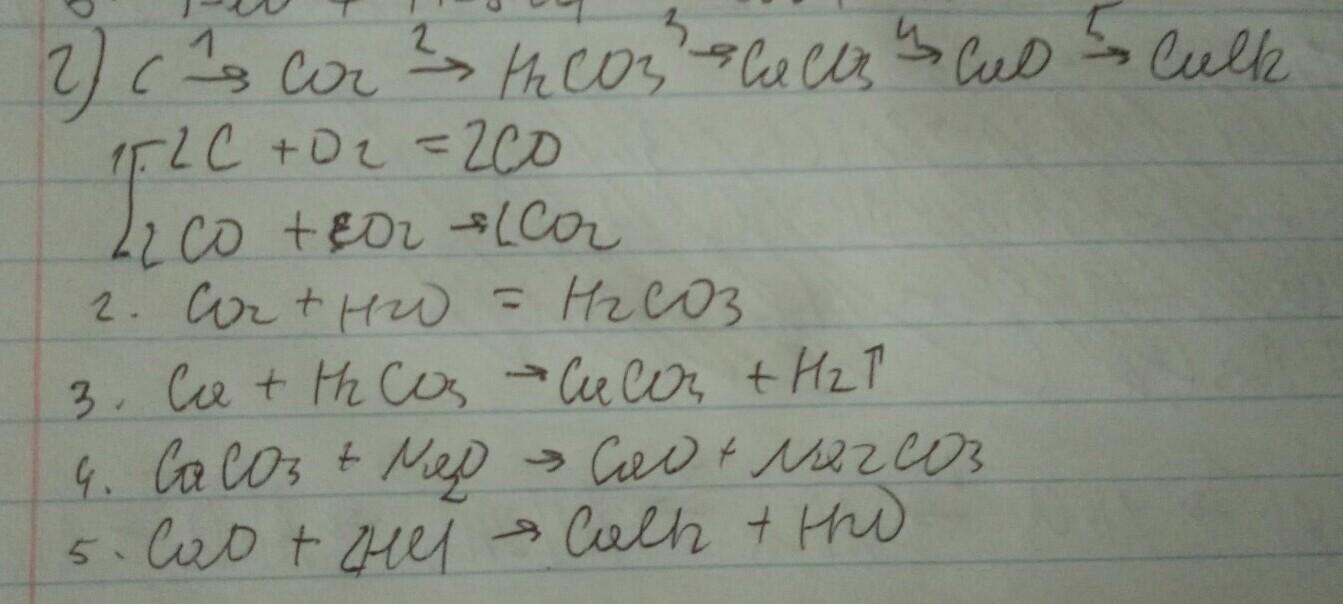 2) C 1→ CO2 2→ H2CO3 3→ CaCO3 4→ CaO 5→ CaCl2
1. 2C + O2 = 2CO
2CO + O2 → 2CO2
2. CO2 + H2O = H2CO3
3. Ca + H2CO3 → CaCO3 + H2↑
4. CaCO3 + Na2O → CaO + Na2CO3
5. CaO + 2HCl → CaCl2 + H2O